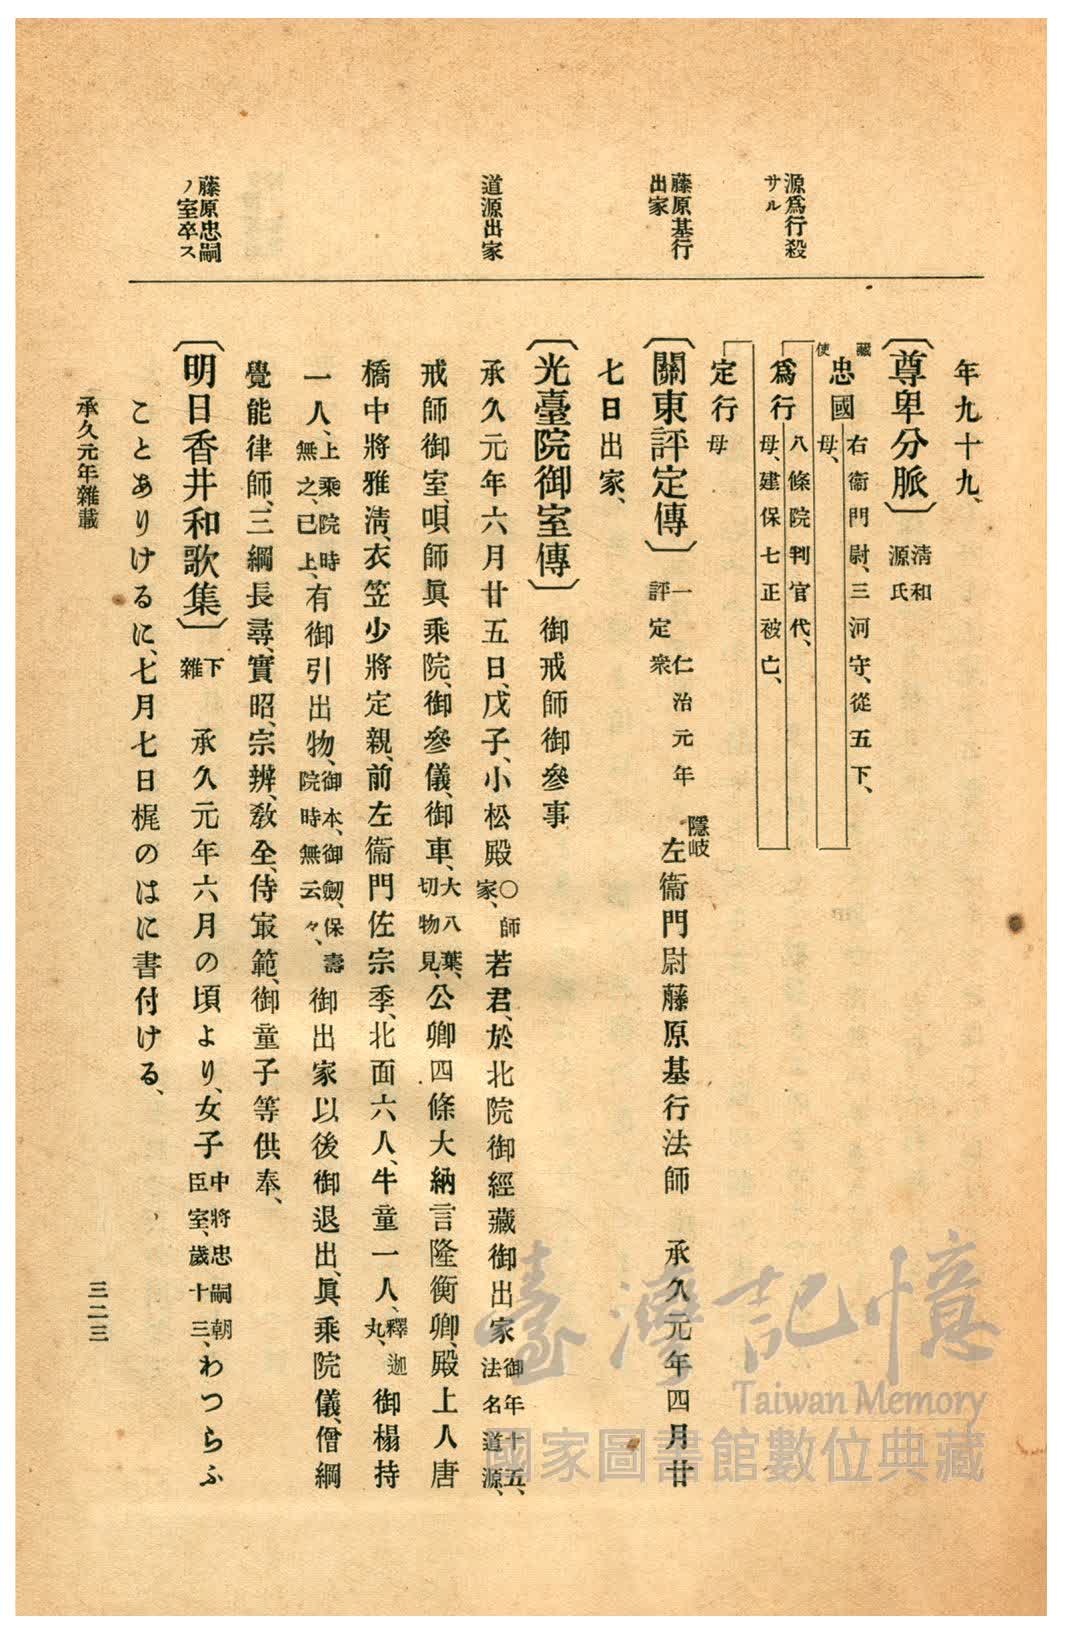 源爲行殺
サル
藤原基行
出家
道源出家
藤原忠嗣
ノ室卒ス
年九十九、
〔尊卑分脈〕淸和源氏
藏使
忠國 右衞門尉、三河守、從五下、
母、
爲行 八條院判官代、
母、建保七正被亡、
定行 母
〔關東評定傳〕一仁治元年評定衆 隱岐左衞門尉藤原基行法師 承久元年四月廿
七日出家、
〔光臺院御室傳〕御戒師御參事
承久元年六月廿五日、戊子、小松殿○師家、若君、於北院御經藏御出家御年十五、法名道源、
戒師御室、唄師眞乘院、御參儀、御車、大八葉、切物見、公卿四條大納言隆衡卿、殿上人唐
橋中將雅淸、衣笠少將定親、前左衞門佐宗季、北面六人、牛童一人、釋迦丸、御榻持
一人、上乘院時無之、已上、有御引出物、御本、御劒、保壽院時無云々、御出家以後御退出、眞乘院儀、僧綱
覺能律師、三綱長尋、實昭、宗辨、敎全、侍㝡範、御童子等供奉、
〔明日香井和歌集〕下雜 承久元年六月の頃より、女子中將忠嗣朝臣室、歲十三、わつらふ
ことありけるに、七月七日梶のはに書付ける、
承久元年雜載
三二三
臺灣記憶
Taiwan Memory
國家圖書館數位典藏